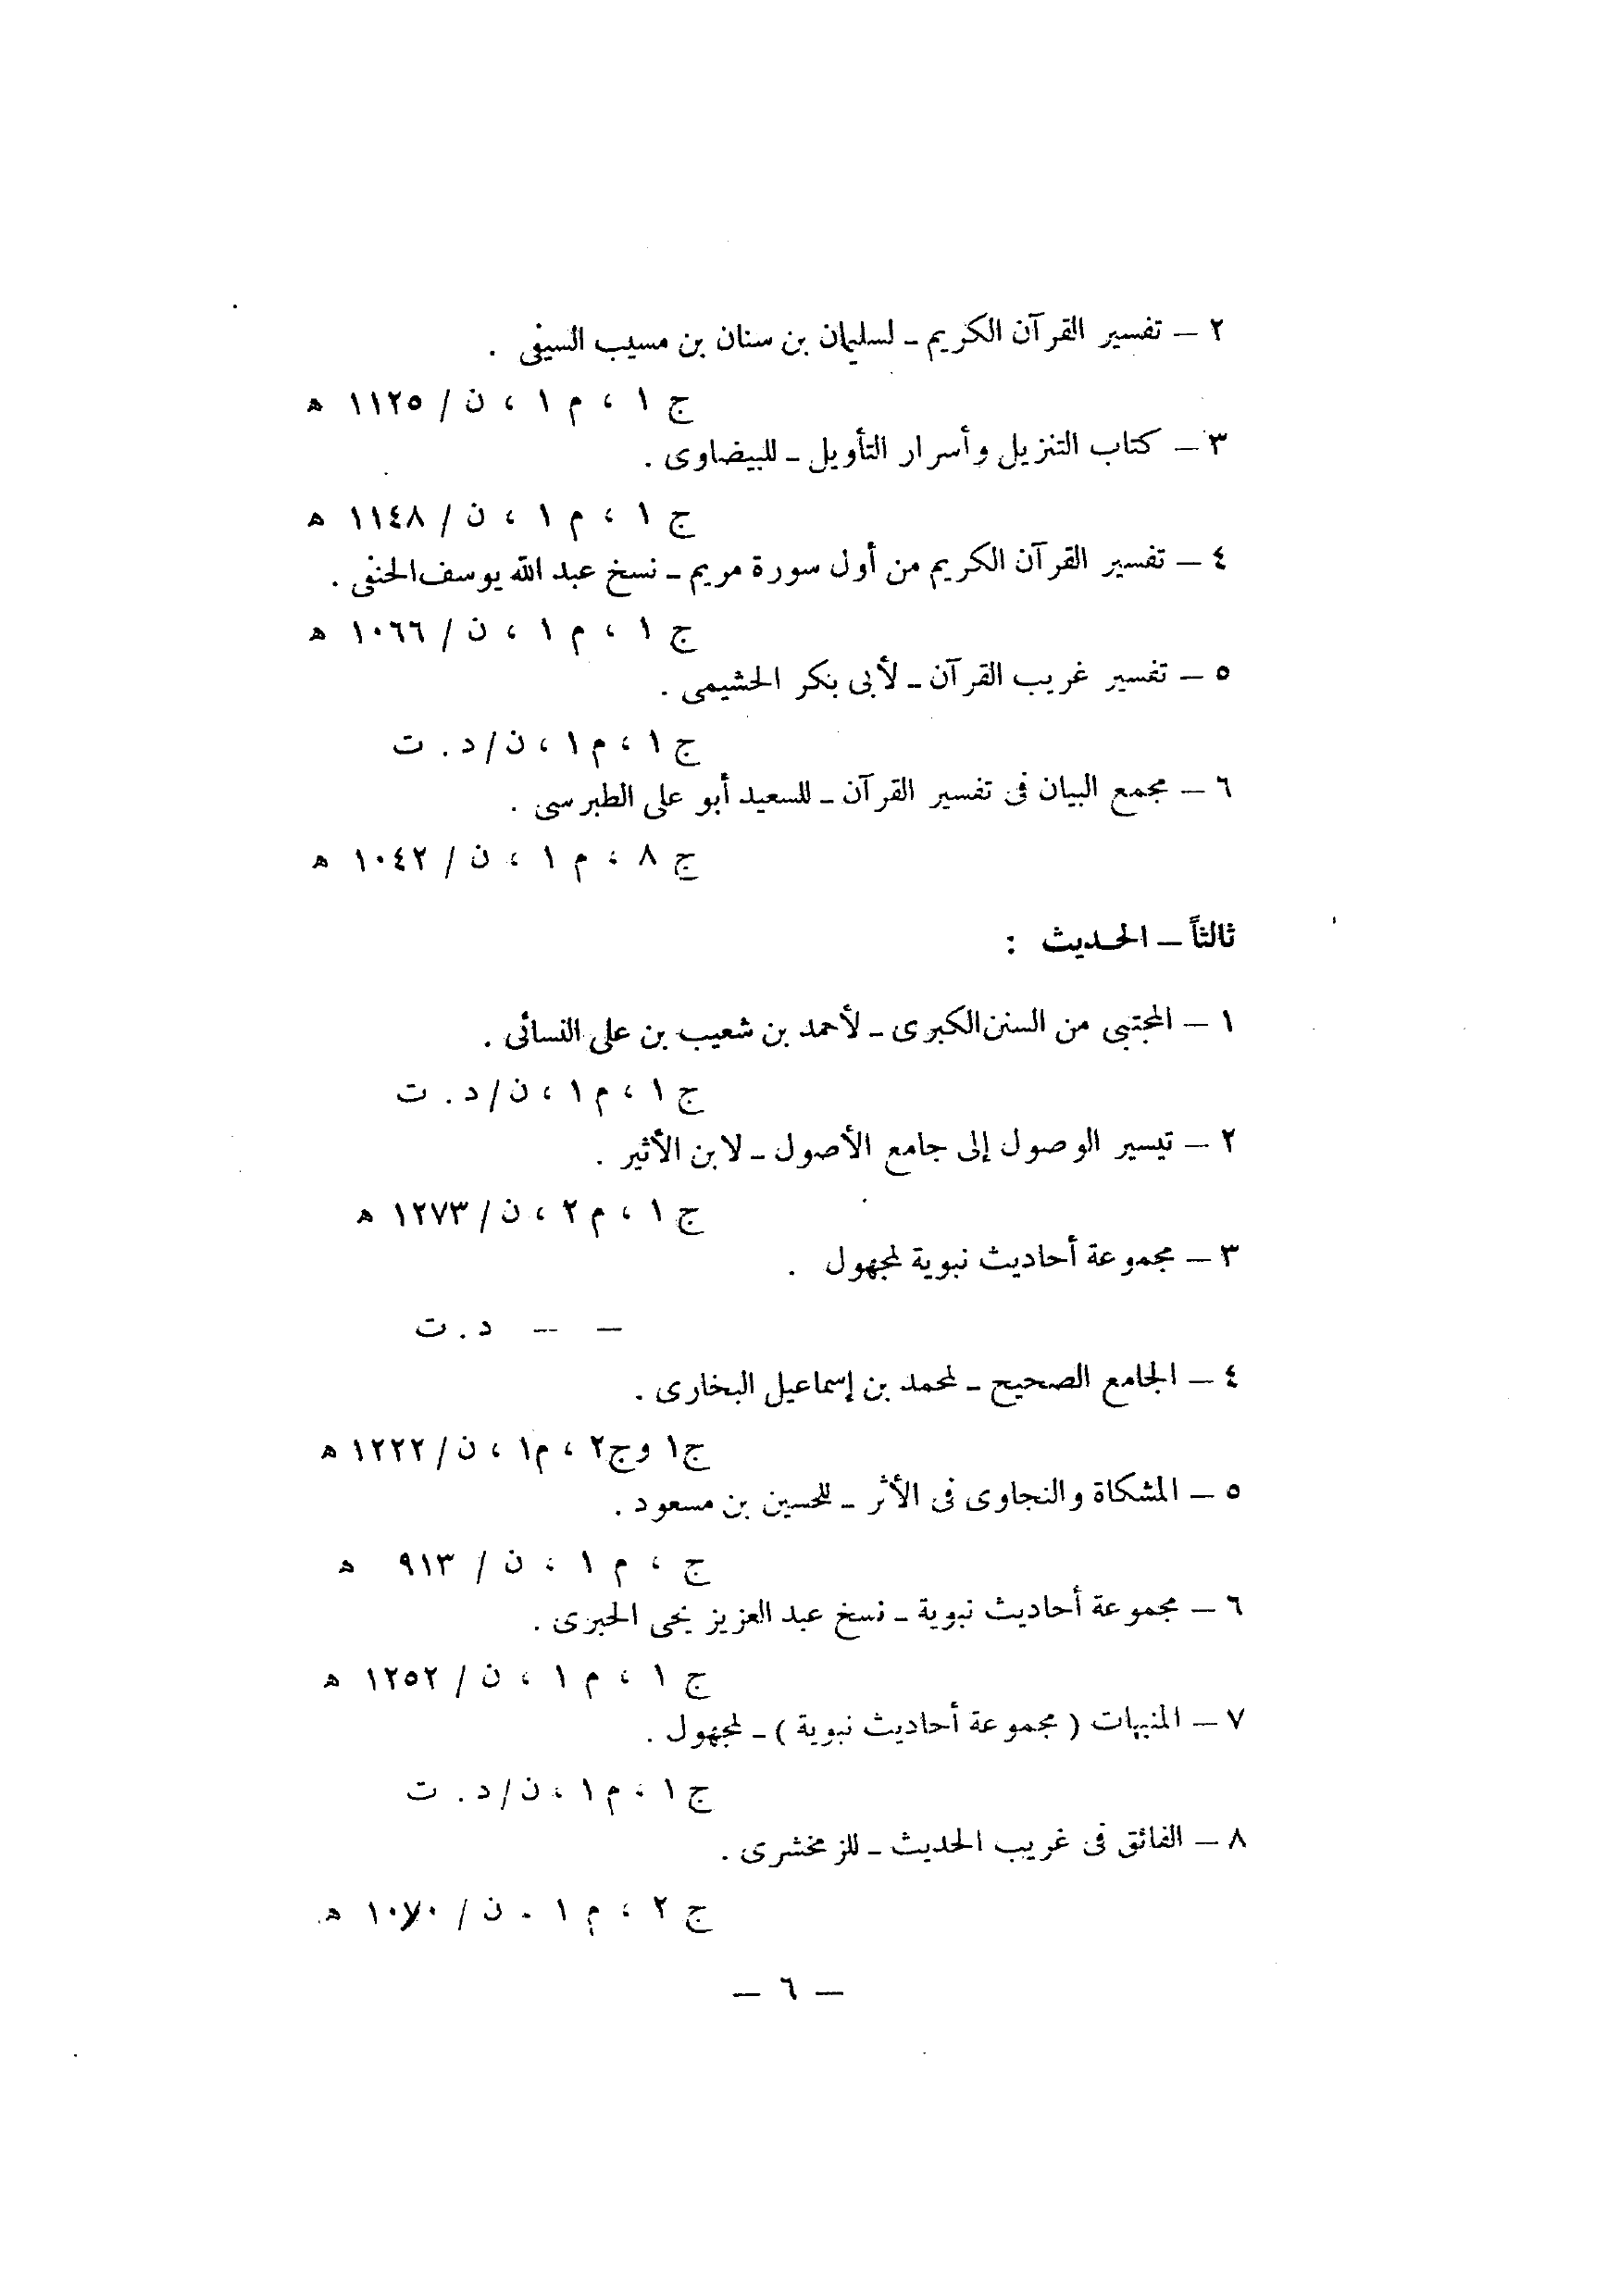 ٢ — تفسير القرآن الكريم ـ لسليمان بن سنان بن مسيب السيفى .
ج ١ ، م ١ ، ن / ١١٢٥ ه
٣ — كتاب التنزيل وأسرار التأويل ـ للبيضاوى .
ج ١ ، م ١ ، ن / ١١٤٨ ه
٤ — تفسير القرآن الكريم من أول سورة مريم ـ نسخ عبد الله يوسف الحنفى .
ج ١ ، م ١ ، ن / ١٠٦٦ ه
٥ — تفسير غريب القرآن ـ لأبى بكر الحشيمى .
ج ١ ، م ١ ، ن / د . ت
٦ — مجمع البيان فى تفسير القرآن ـ للسعيد أبو على الطبرسى .
ج ٨ ، م ١ ، ن / ١٠٤٢ ه
ثالثاً — الحديث :
١ — المجتبى من السنن الكبرى ـ لأحمد بن شعيب بن على النسائى .
ج ١ ، م ١ ، ن / د . ت
٢ — تيسير الوصول إلى جامع الأصول ـ لابن الأثير .
ج ١ ، م ٢ ، ن / ١٢٧٣ ه
٣ — مجموعة أحاديث نبوية لمجهول .
— — د . ت
٤ — الجامع الصحيح ـ لمحمد بن إسماعيل البخارى .
ج١ وج٢ ، م١ ، ن / ١٢٢٢ ه
٥ — المشكاة والنجاوى فى الأثر ـ للحسين بن مسعود .
ج ، م ١ ، ن / ٩١٣ ه
٦ — مجموعة أحاديث نبوية ـ نسخ عبد العزيز يحى الحبرى .
ج ١ ، م ١ ، ن / ١٢٥٢ ه
٧ — المنبهات ( مجموعة أحاديث نبوية ) ـ لمجهول .
ج ١ ، م ١ ، ن / د . ت
٨ — الفائق فى غريب الحديث ـ للزمخشرى .
ج ٢ ، م ١ . ن / ١٠٧٠ ه
— ٦ —